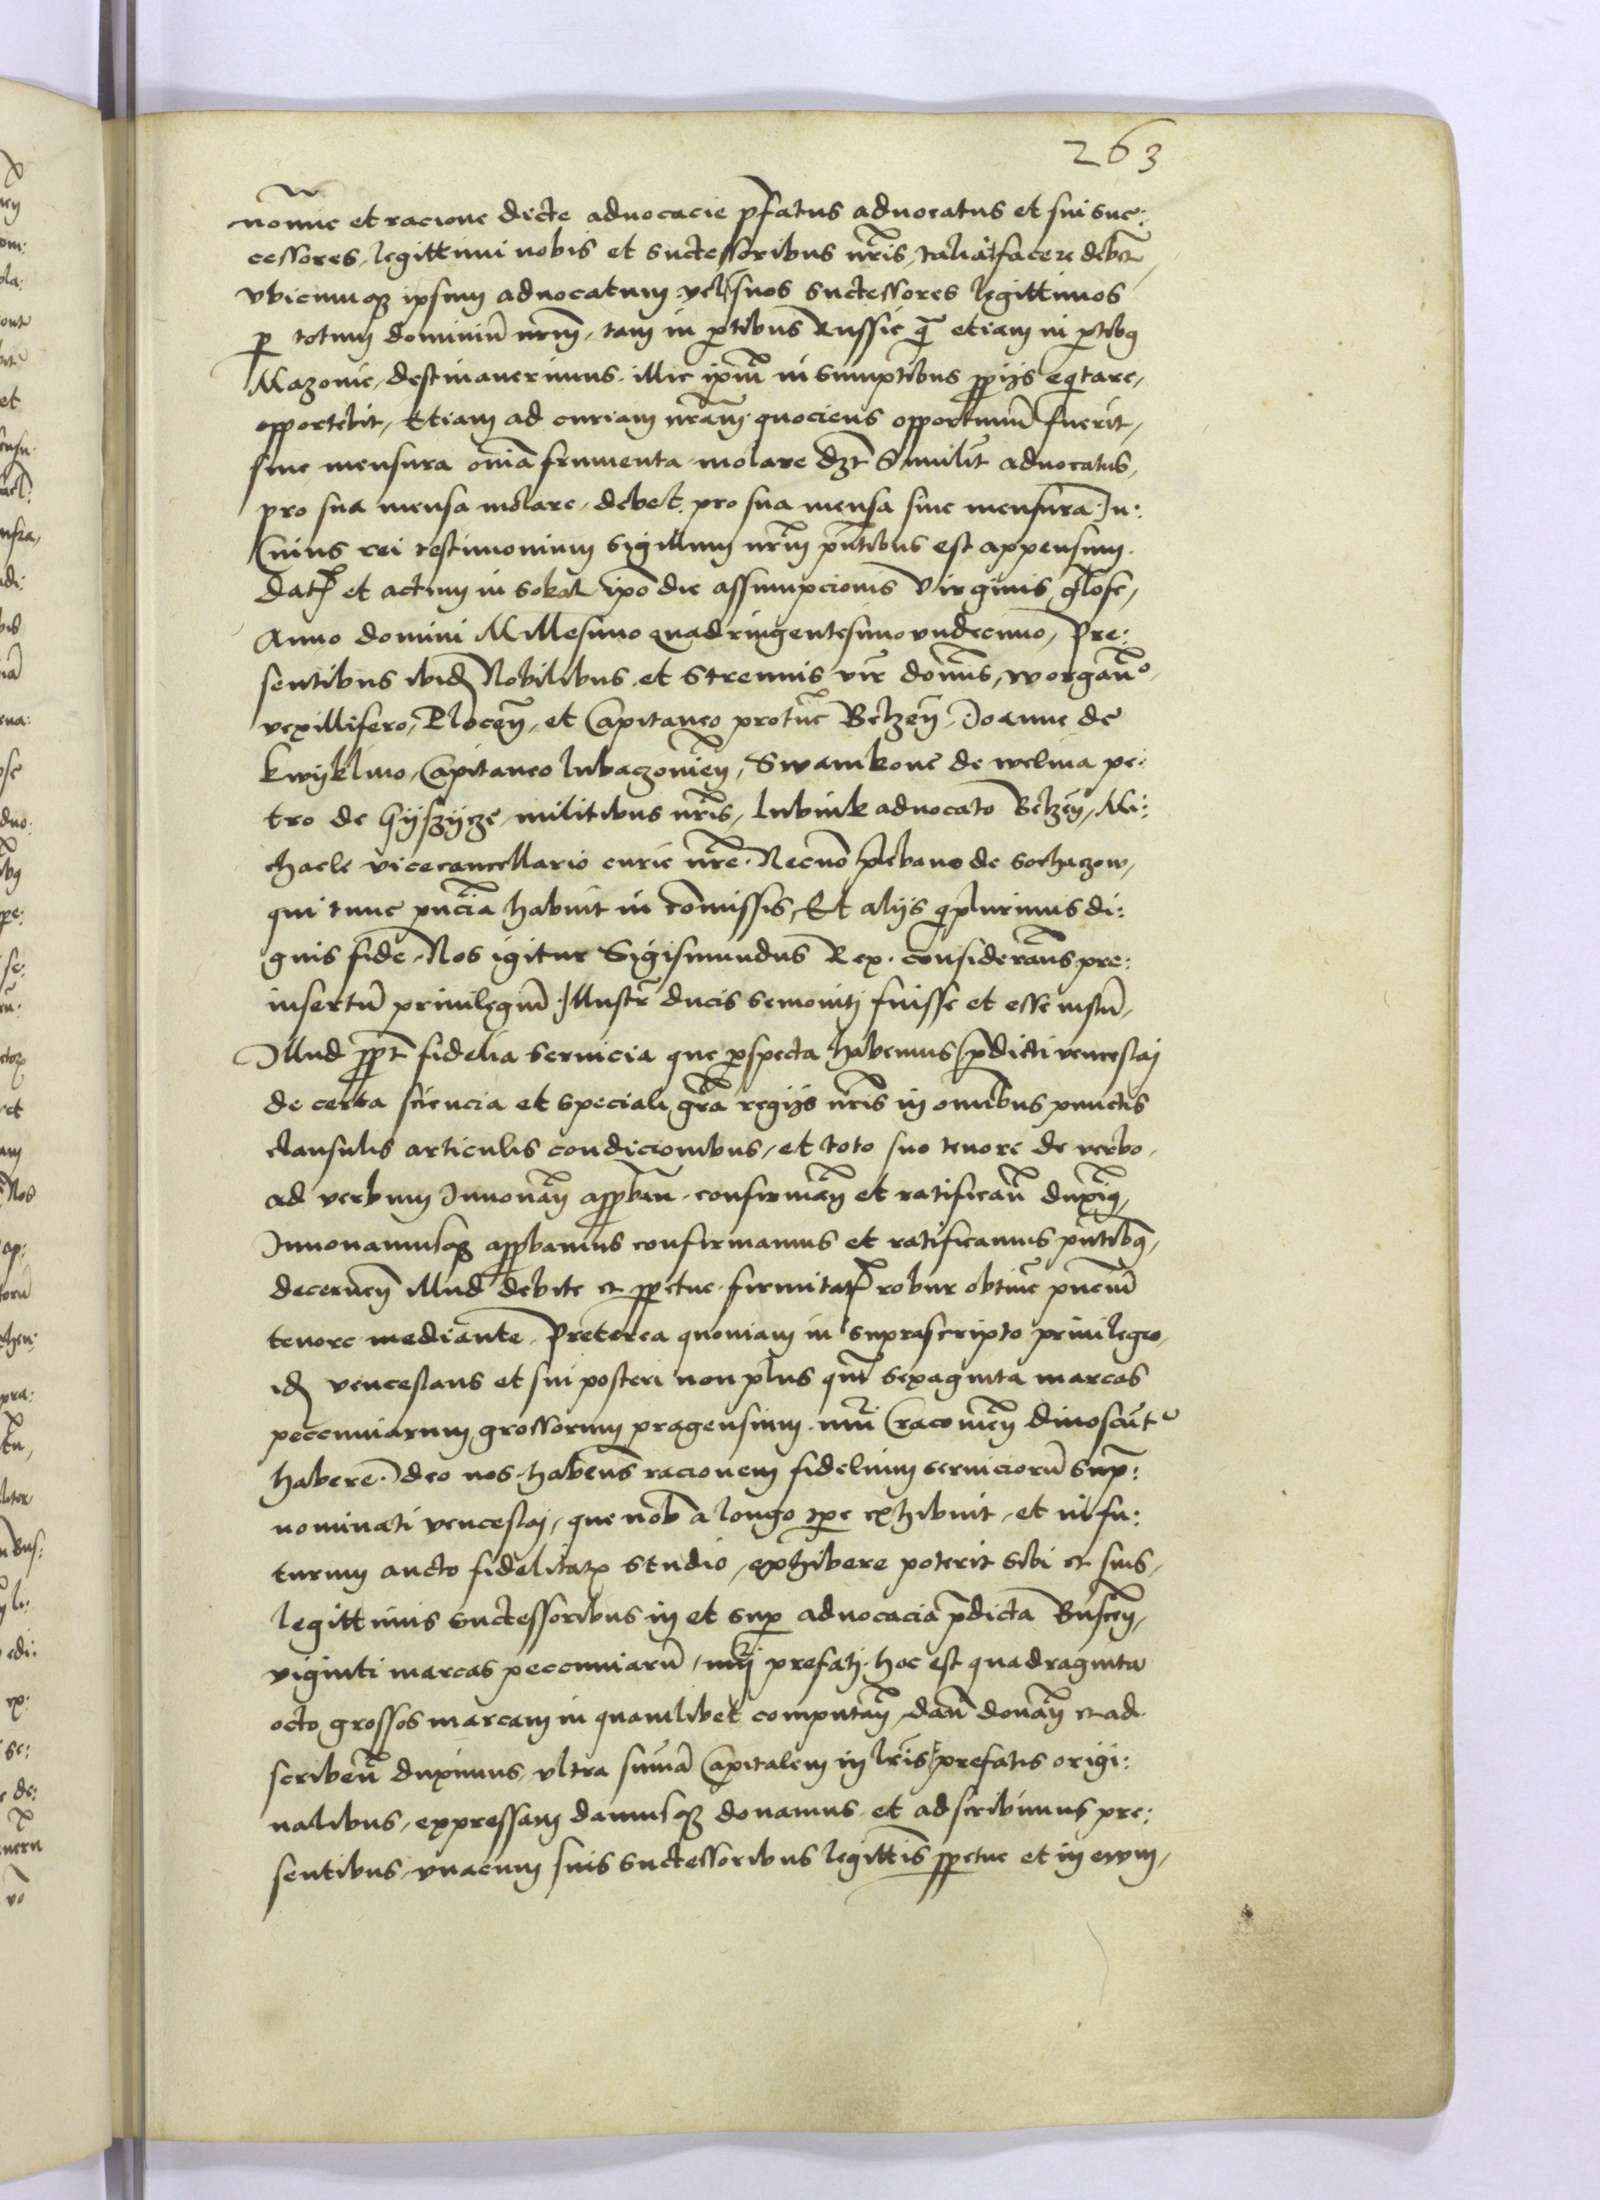 263
nomine et racione dicte advocacie p̄fatus advocatus et sui suc:
cessores, legittimi nobis et suctessoribus nr̄is, talia facere debet
vbicumq̄ ipsum advocatum vel suos suctessores legittimos
p totum dominiū nrm̄, tam in ptibus Russie q̄ etiam in ptibq
Mazouie, destinauerimus. illic ipm̄ in sumptibus ppijs eqtare,
opportebit, Etiam ad curiam nram̄ quociens opportunū fuerit,
sine mensura om̄ia frumenta molare dȝt Similit̄ advocatus,
pro sua mensa molare, debet pro sua mensa sine mensura. In:
Cuius rei testimonium sigillum nrm̄ pn̄tibus est appensum.
Dat et actum in Sokal ipō die assumpcionis virginis glōse,
Anno domini Millesimo quadringentesimo vndecimo, Pre:
sentibus ibid Nobilibus et Strennis vir̄ domīs, worgano
vexillifero, Plocen̄, et Capitaneo protūc Belzen̄, Joanne de
kwyklino, Capitaneo lubaczouien̄, Swankone de welina pe:
tro de Gyszycze, militibus nr̄is, lubink advocato Belzen̄, Mi:
chaele vicecancellario curie nr̄e. Necnō plebano de Sochaczow,
qui tunc pn̄cia habuit in cōmissis, Et alijs qplurimis di:
gnis fide. Nos igitur Sigismundus Rex. considerans̄ pre:
insertū priuilegiū Illustr̄ ducis Semouiti fuisse et esse iustū,
Illud ppt̄ fidelia seruicia que pspecta habemus p̄dicti venceslai
de certa sciencia et speciali grā regijs nr̄is in omibus punctis
clausulis articulis condicionibus, et toto suo tenore de verbo,
ad verbum Innouan̄ appban̄. confirman̄ et ratifican̄ duxim̄q,
Innouamusq̄ appbamus confirmamus et ratificamus pn̄tibq,
decernen̄ illud debite et ppetue firmitat robur obtine pn̄ciū
tenore mediante. Preterea quoniam in suprascripto priuilegeo,
id venceslaus et sui posteri non plus qm̄ sexaginta marcas
peccuniarum grossorum pragensium. num̄i Cracouien̄ dinoscūt
habere. Ideo nos habens racionem fidelium seruiciorū sup:
nominati venceslai, que nob̄ a longo tpe exhibuit, et in fu:
turum aucto fidelitat studio, exhibere poterit sibi et suis,
legittimis suctessoribus in et sup advocacia p̄dicta Buscen̄,
viginti marcas peccuniarū, num̄i prefati. hoc est quadraginta
octo grossos marcam in quamlibet computan̄, dan̄ donan̄ et ad
scriben̄ duximus, vltra sum̄ā Capitalem in lr̄is prefatis origi:
nalibus, expressam damusq̄ donamus et adscribimus pre:
sentibus, vnacum suis suctessoribus legittīs ppetue et in ewm,